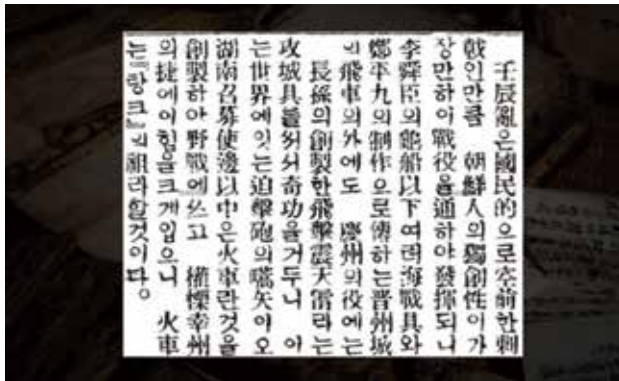 壬辰亂은國民的으로空前한刺
戟인만큼 朝鮮人의獨創性이가
장만하이戰役을通하야發揮되니
李舜臣의龜船以下여러海戰具와
鄭平九의制作으로傳하는晋州城
의飛車의外에도 慶州의役에는
長孫의創製한飛擊震天雷라는
攻城具를써서奇功을거두니 이
는世界에잇는迫擊砲의嚆矢이오
湖南召募使邊以中은火車란것을
創製하야野戰에쓰고 權慄幸州
의捷에이힘을크게입으니 火車
는『탕크』의祖라할것이다。